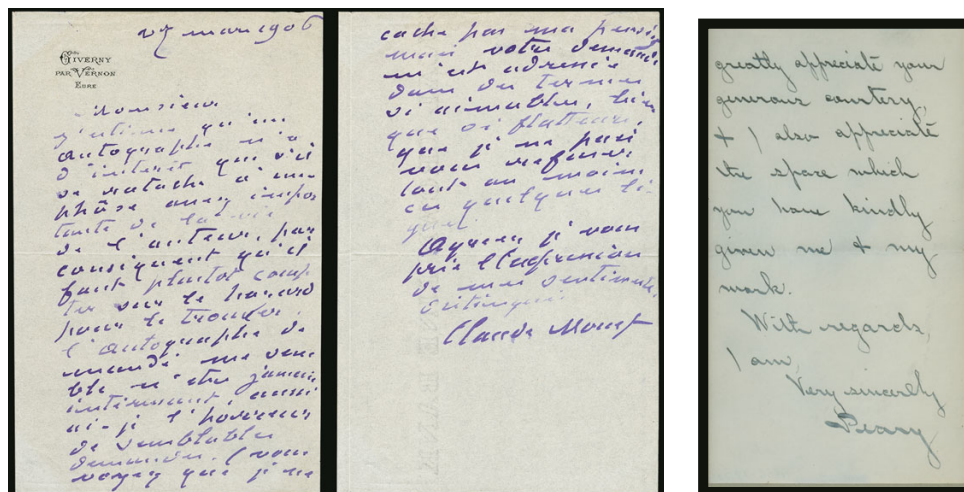 27 mars 1906
GIVERNY
PAR VERNON
EURE
Monsieur
j'estime qu'un
autographe n'a
d'interet que s'il
se ratache a une
phâse assez impor
tante de la vie
de l'auteur, par
consiquent qu'il
faut plutot comp
ter sur le hasard
pour le trouver.
l'autographe de
mandé me sem
ble n'etre jamais
interessant aussi
ai-je l'horreur
de semblables
demandes. (vous
voyez que je ne
cache pas ma pensée
mais votre demande
m'est adressée
dans des termes
si aimables, bien
que si flatteurs,
que je ne puis
vous refuser
tout au moins
ces quelques li-
gnes
Agreez je vous
prie l'expression
de mes sentiments
distingués.
Claude Monet
greatly appreciate your
generous courtesy,
& I also appreciate
the space which
you have kindly
given me & my
work.
With regards,
I am,
Very sincerely
Peary